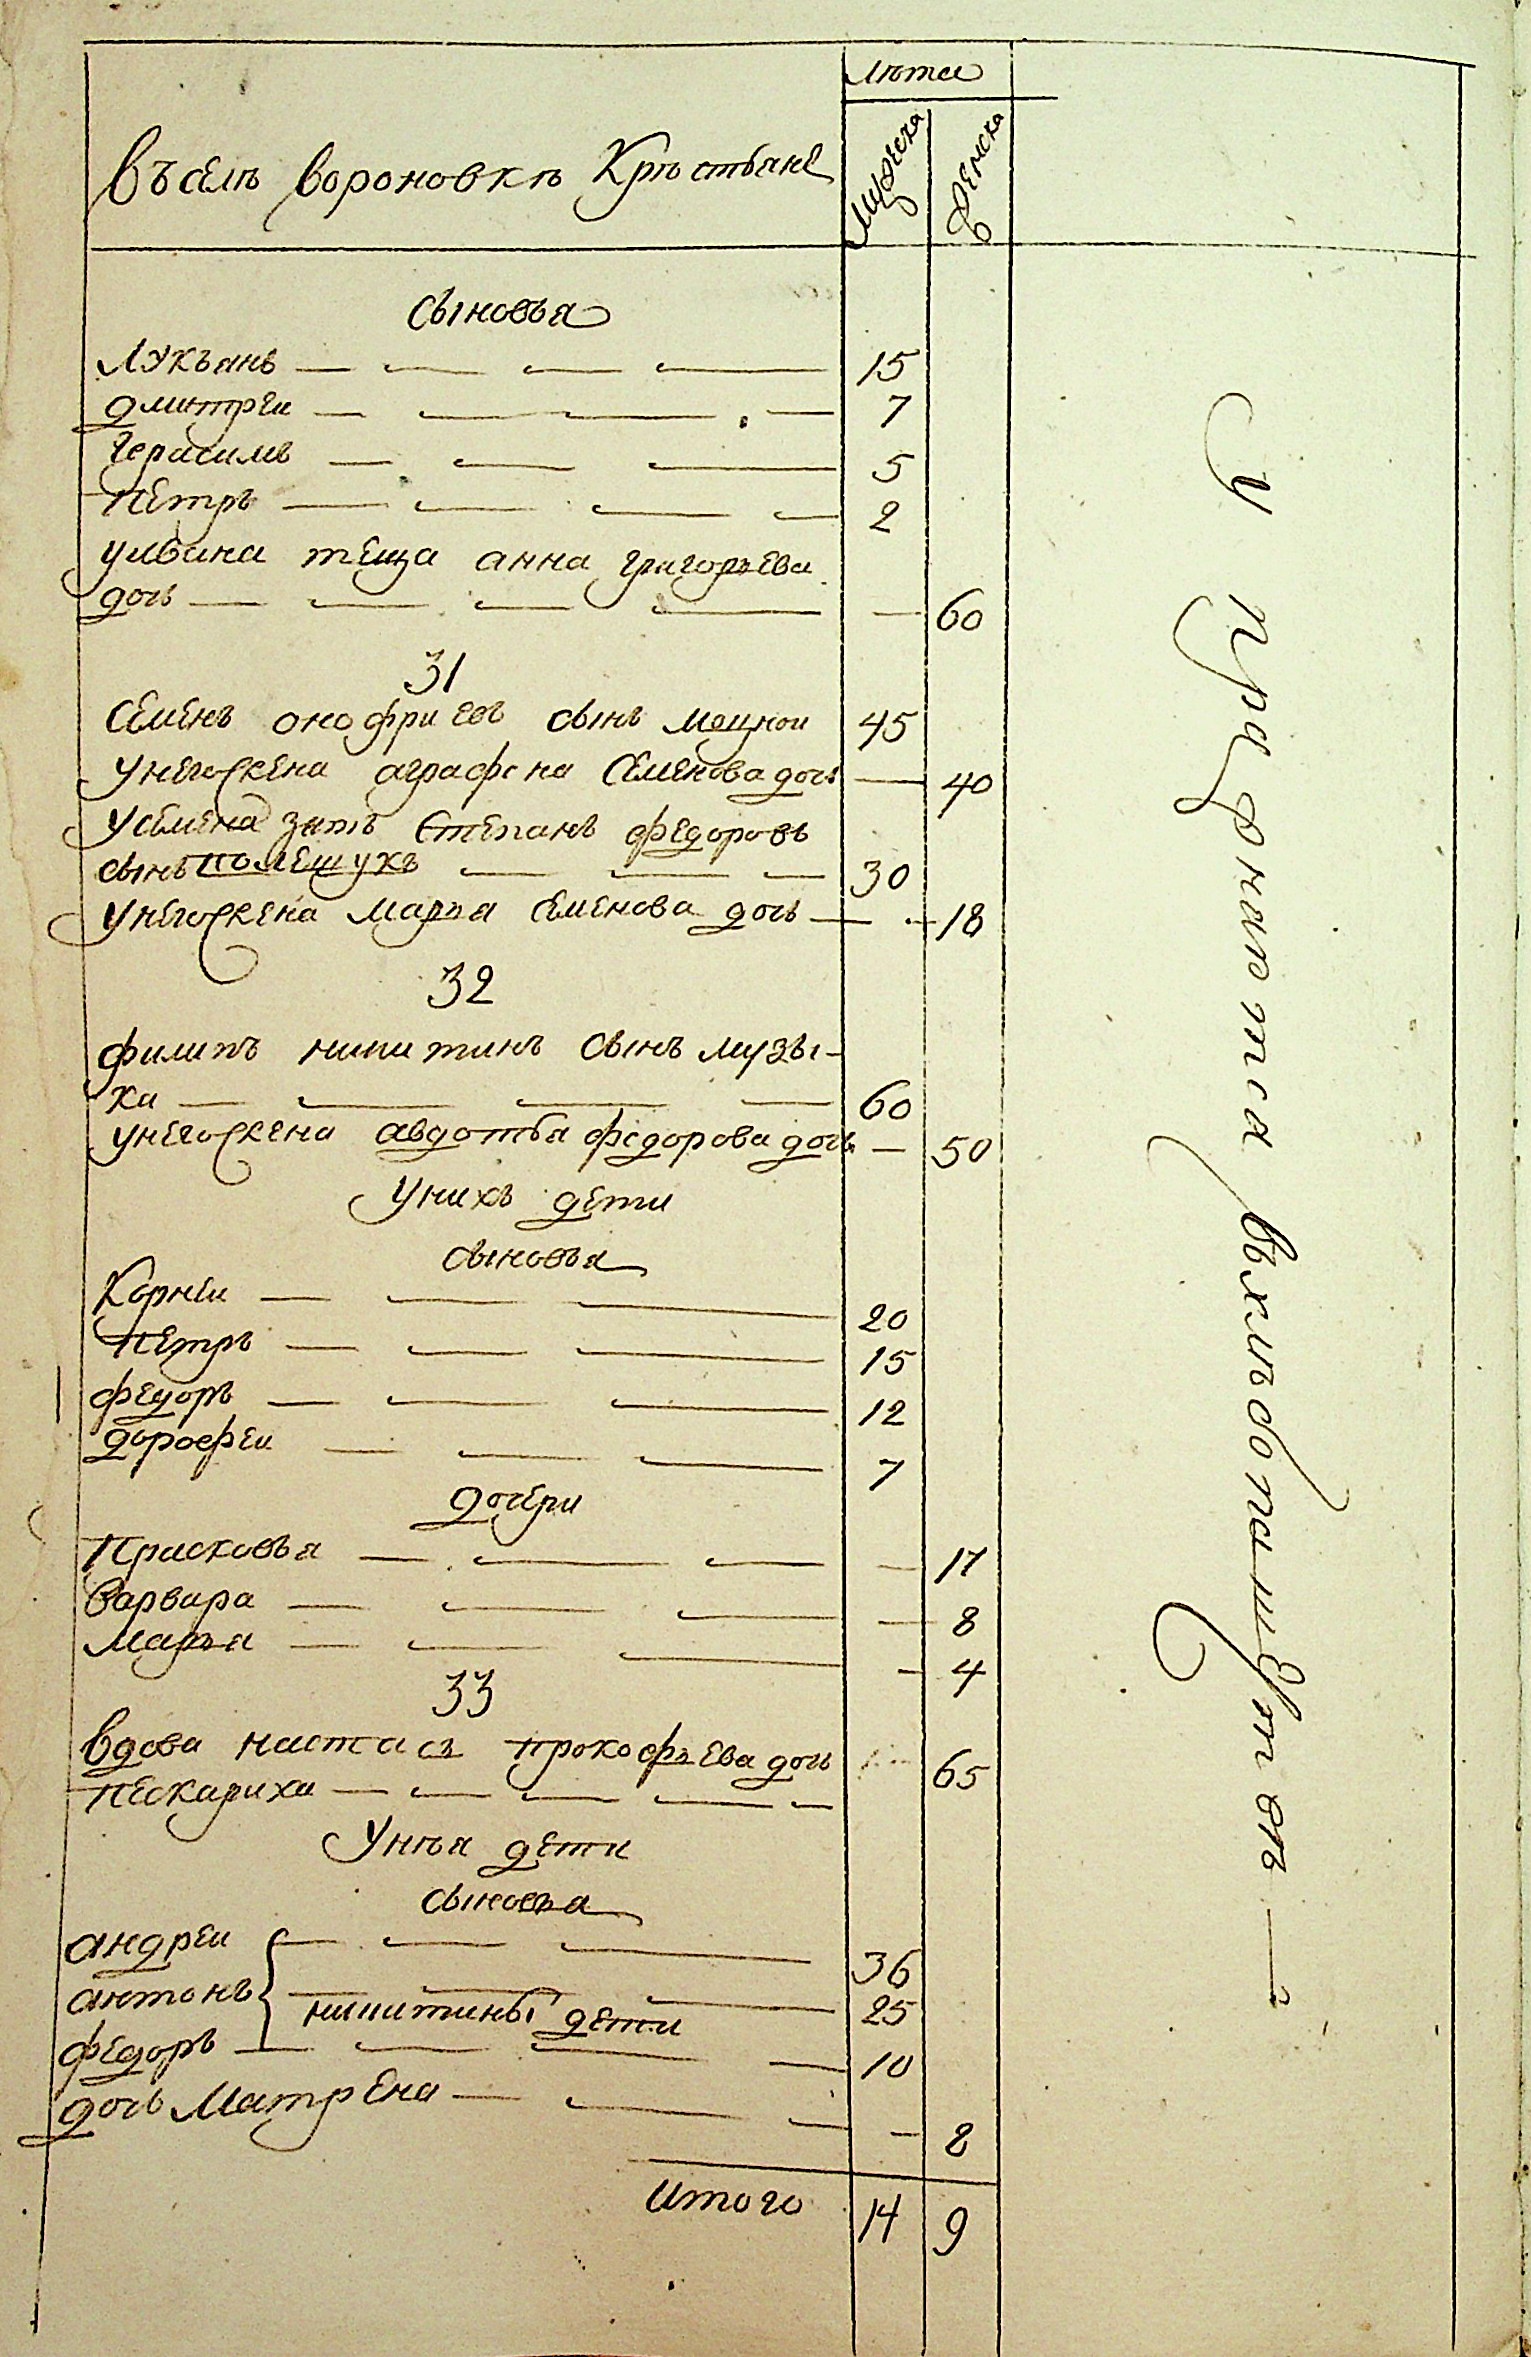 Лѣта
въ селѣ вороновкѣ Крѣстьяне
Мужеска
женска
сыновья
Лукъянъ 15
дмитреи 7
герасимъ 5
Петръ 2
уивана теща анна григорьева
дочь — 60
31
Семенъ онофриевъ сынъ Моцнои 45
унегожена аграфена Семенова дочь — 40
усемена зять Степанъ федоровъ
сынъ полещукъ 30
унегожена Марья Семенова дочь — 18
32
филипъ никитинъ сынъ музы-
ка 60
унегожена авдотья федорова дочь — 50
Унихъ дети
сыновья
Корнеи 20
Петръ 15
федоръ 12
дорофеи 7
дочери
Прасковья — 17
варвара — 8
Марья — 4
33
вдова настасья прокофьева дочь 65
пескариха
Унѣя дети
сыновья
андреи 36
антонъ 25
никитины дети
федоръ 10
дочь Матрена — 8
Итого 14 9